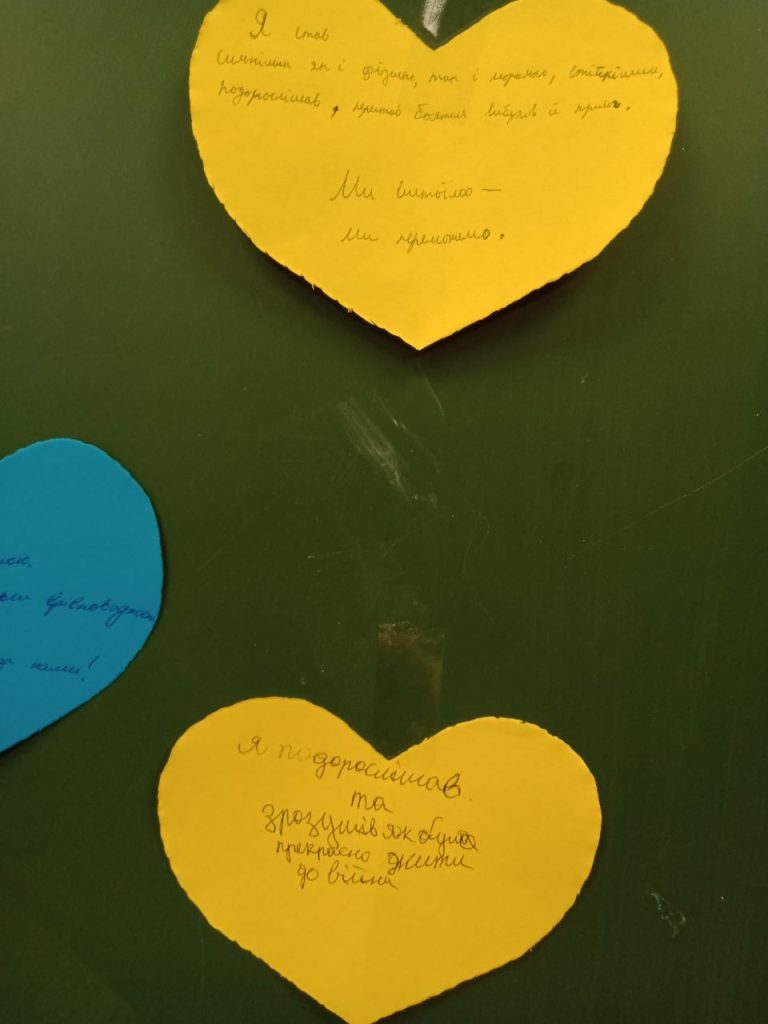 Я став
сильніши як і фізично, так і морально, стійкішим,
подорослішав, перестав боятися вибухів й прильо.
Ми вистоїмо —
ми переможемо.
лою.
врівноважен
нами!
Я подорослішав
та
зрозумів як було
прекрасно жити
до війни